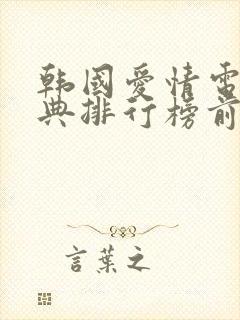 韩國愛情電
典排行榜前
言葉之